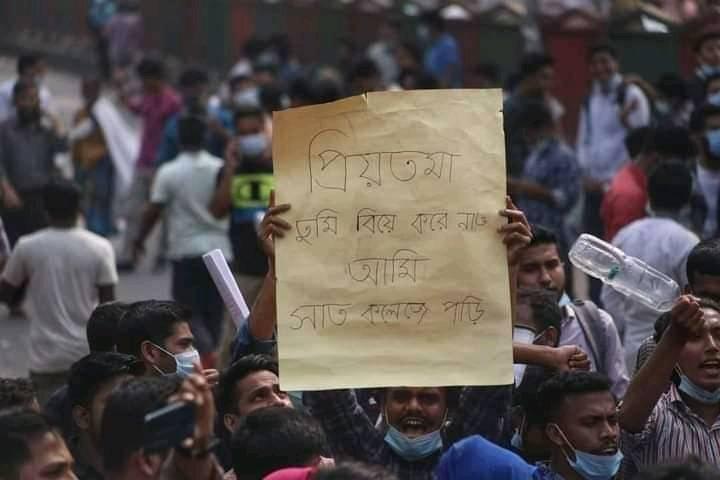 প্রিয়তমা
তুমি বিয়ে করে নাও
আমি
সাত কলেজে পড়ি